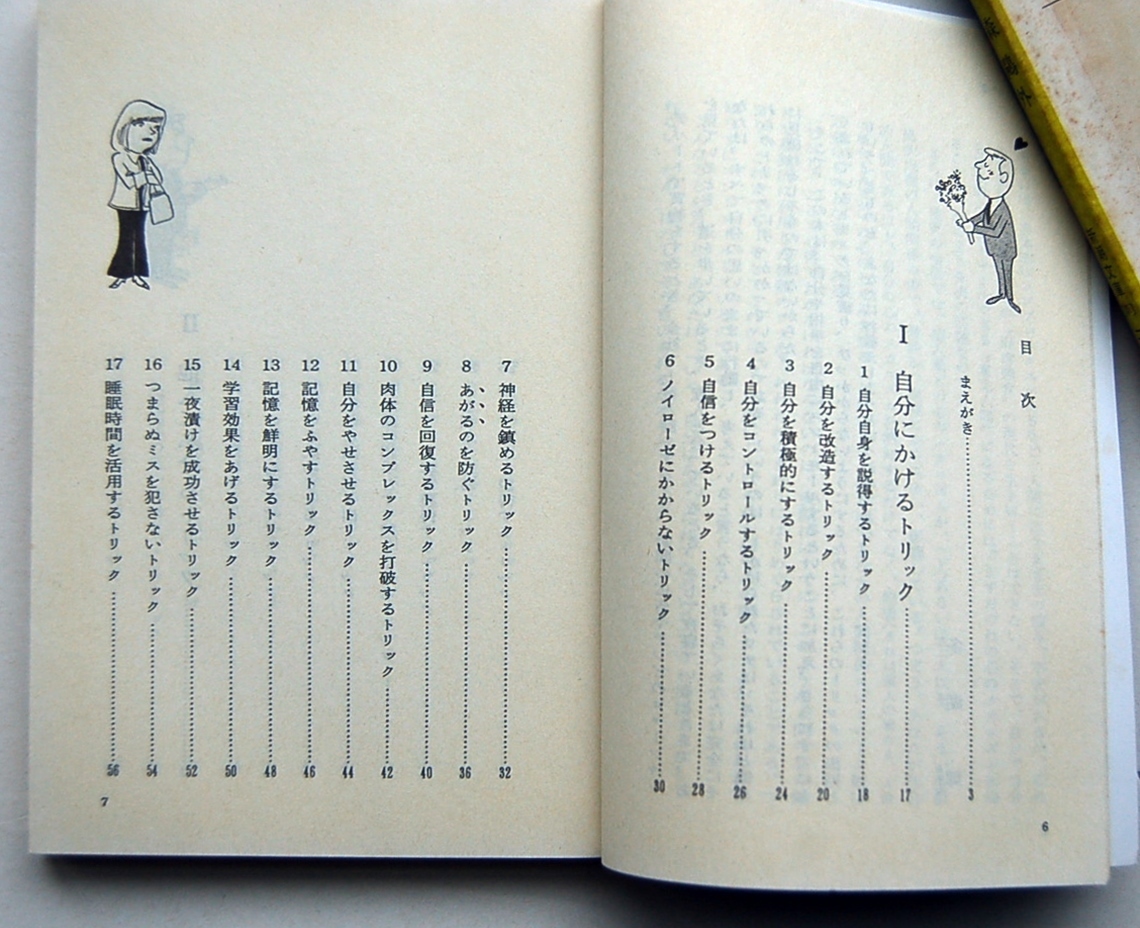 目次
まえがき……3
Ⅰ 自分にかけるトリック……17
1 自分自身を説得するトリック……18
2 自分を改造するトリック……20
3 自分を積極的にするトリック……24
4 自分をコントロールするトリック……26
5 自信をつけるトリック……28
6 ノイローゼにかからないトリック……30
6
7 神経を鎮めるトリック……32
8 あがるのを防ぐトリック……36
9 自信を回復するトリック……40
10 肉体のコンプレックスを打破するトリック……42
11 自分をやせさせるトリック……44
12 記憶をふやすトリック……46
13 記憶を鮮明にするトリック……48
14 学習効果をあげるトリック……50
15 一夜漬けを成功させるトリック……52
16 つまらぬミスを犯さないトリック……54
17 睡眠時間を活用するトリック……56
7
Ⅱ